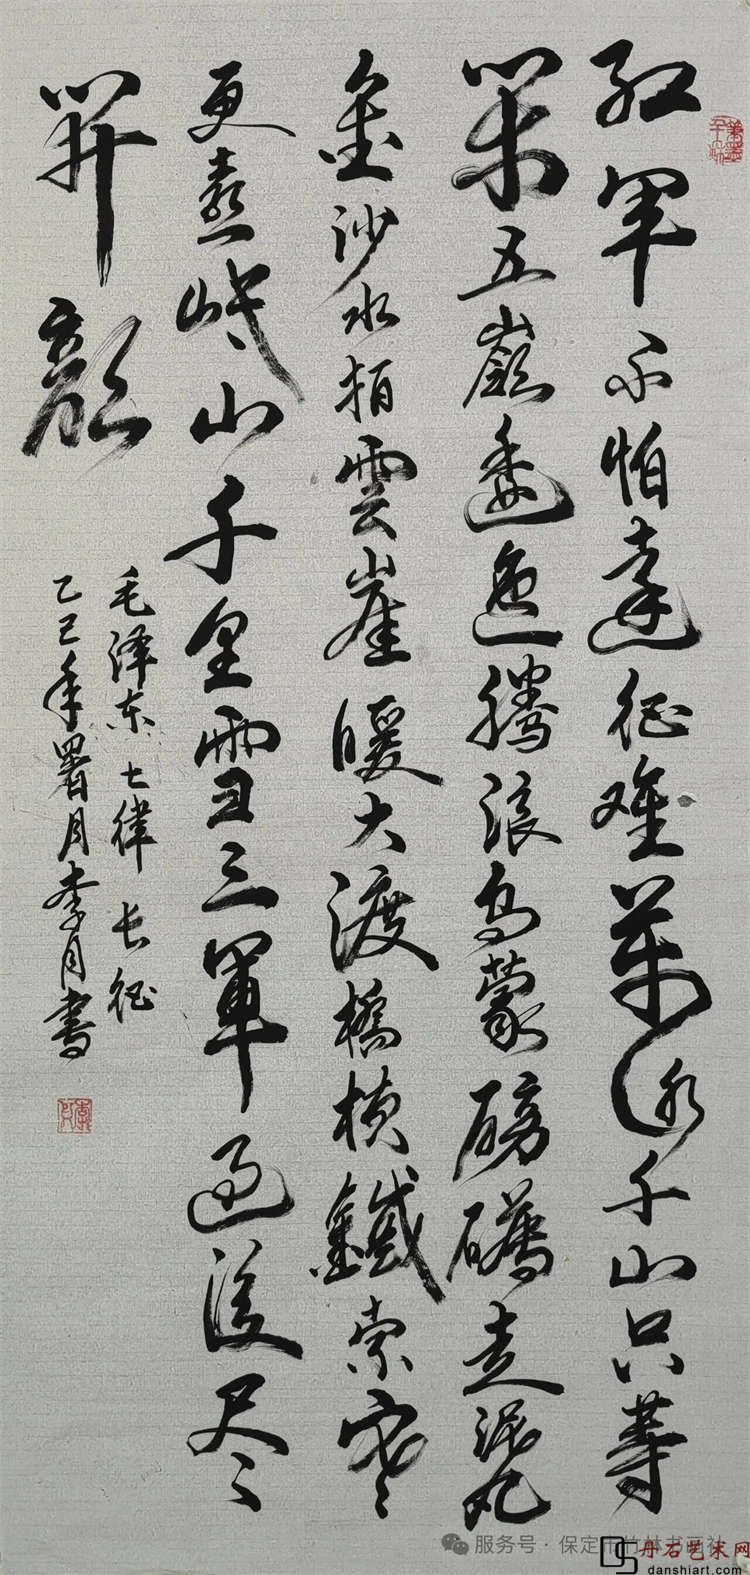 红军不怕遠征难萬水千山只等
閑五嶺逶迤騰浪烏蒙磅礴走泥丸
金沙水拍雲崖暖大渡橋横鐵索寒
更喜岷山千里雪三軍過後尽
開顔
毛泽东七律长征
乙巳年署月李月書
服务号·保定市竹林书画社
丹石艺术网
danshiart.com